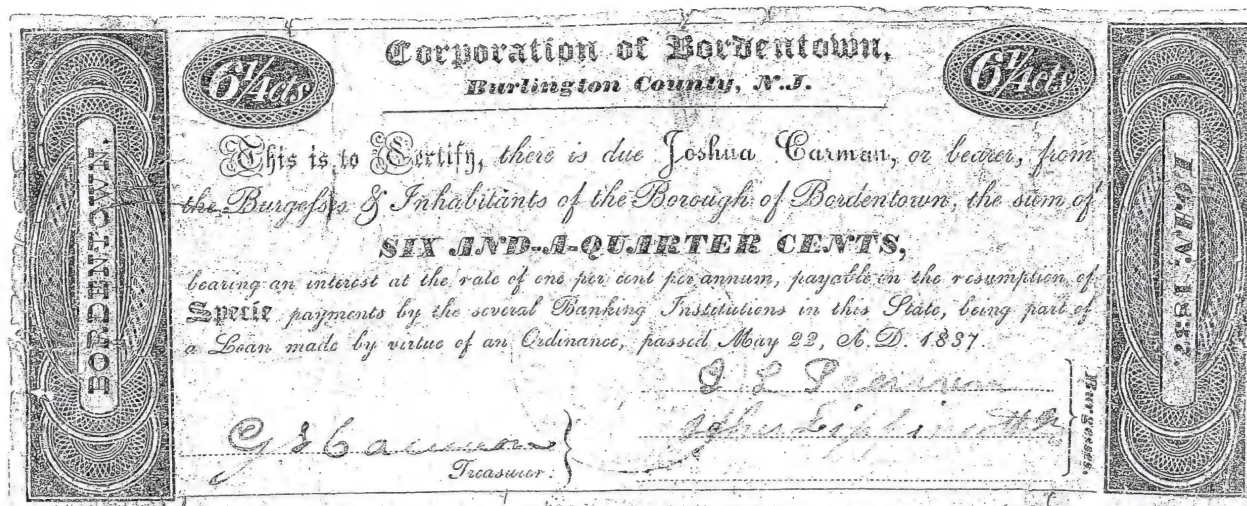 6¼cts
Corporation of Bordentown,
6¼cts
Burlington County, N.J.
This is to Certify, there is due Joshua Carman, or bearer, from
the Burgesses & Inhabitants of the Borough of Bordentown, the sum of
SIX AND-A-QUARTER CENTS,
bearing an interest at the rate of one per cent per annum, payable on the resumption of
Specie payments by the several Banking Institutions in this State, being part of
a Loan made by virtue of an Ordinance, passed May 22, A.D. 1837.
John Lippincott
Treasurer.
Burgesses.
BORDENTOWN.
LOAN, 1837.